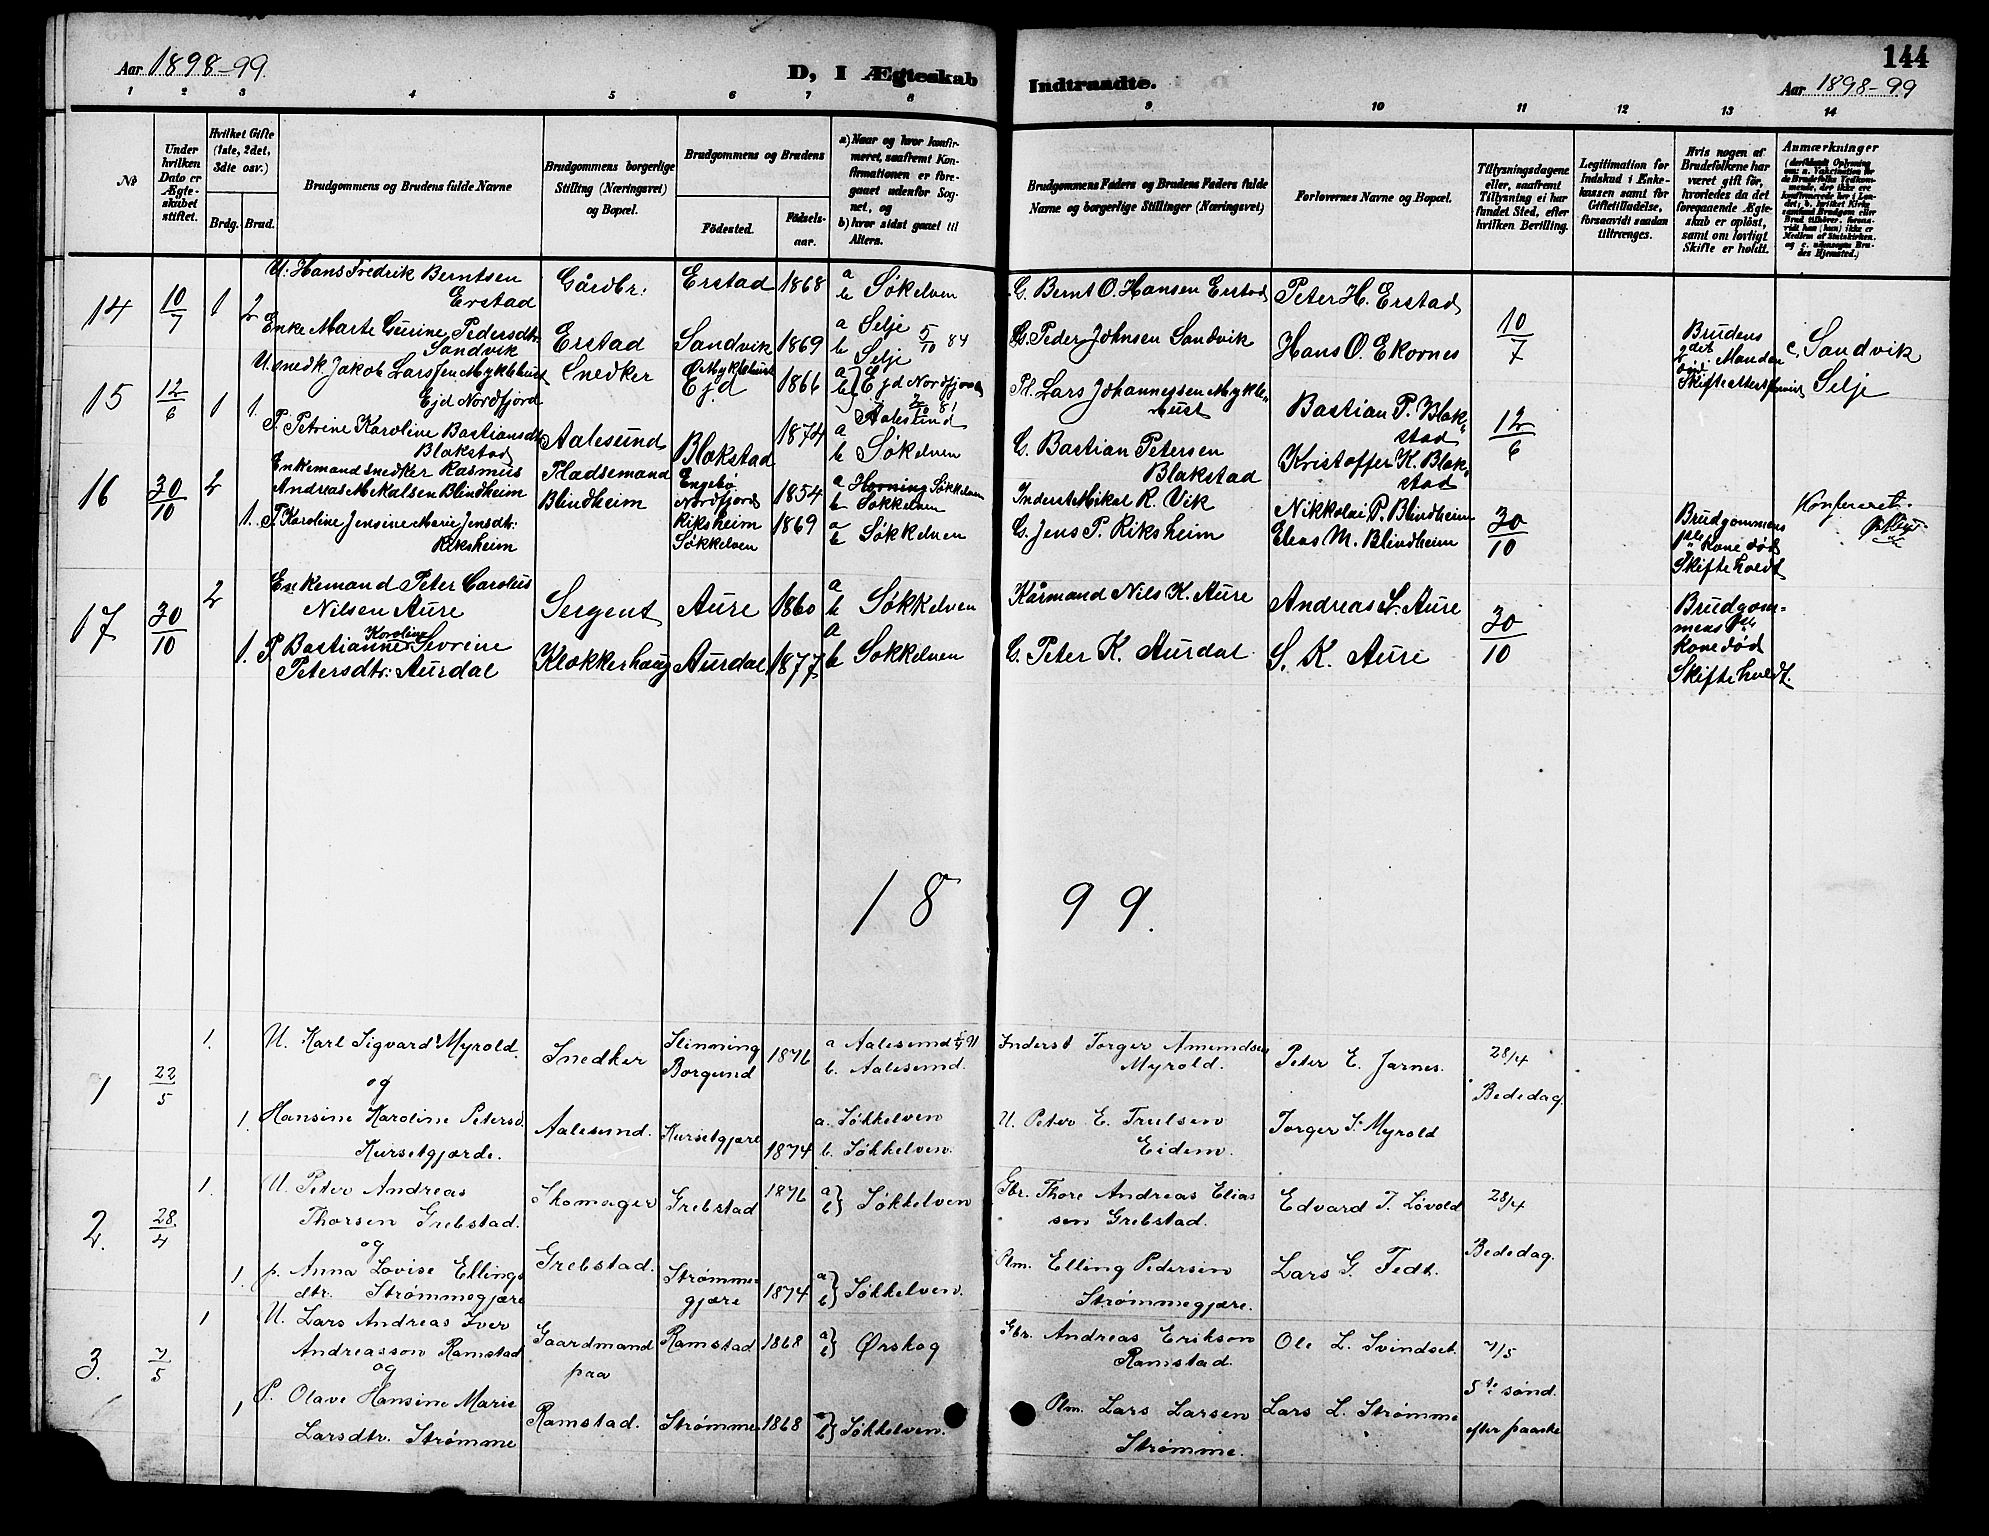 144
Aar 1898-99.
D, I Ægteskab Indtraadte.
Aar 1898-99
1 2 3 4 5 6 7 8 9 10 11 12 13 14
№
Under hvilken Dato er Ægteskabet stiftet.
Hvilket Gifte (1ste, 2det, 3die osv.)
Brdg. Brud.
Brudgommens og Brudens fulde Navne
Brudgommens borgerlige Stilling (Næringsvei) og Bopæl.
Brudgommens og Brudens
Födested. Födselsaar.
a) Naar og hvor konfirmeret, saafremt Konfirmationen er foregaaet udenfor Sognet, og
b) hvor sidst gaaet til Alters.
Brudgommens Faders og Brudens Faders fulde Navne og borgerlige Stillinger (Næringsvei)
Forlovernes Navne og Bopæl.
Tillysningsdagene eller, saafremt Tillysning ei har fundet Sted, efter hvilken Bevilling.
Legitimation for Indskud i Enkekassen samt for Giftetilladelse, forsaavidt saadan tiltrænges.
Hvis nogen af Brudefolkene har været gift för, hvorledes da det foregaaende Ægteskab er oplöst, samt om lovligt Skifte er holdt.
Anmærkninger
14 10/7 1 2
U. Hans Fredrik Berntsen
Erstad
Gårdbr. Erstad 1868 a b Søkelven
G. Bernt O. Hansen Erstad
Peter H. Erstad
Enke Marte Gurine Pedersdtr.
Sandvik
Erstad Sandvik 1869 a Selje 5/10 84
b Selje
G. Peder Johnsen Sandvik
Hans O. Ekornes
10/7
Brudens
Manden
c, Sandvik
Selje
15 12/6 1 1.
U. snedk Jakob Larssen Myklebust
Ejd Nordfjord
Snedker
Ejd 1866 a b Ejd Nordfjord
Aalesund
Pl. Lars Johannessen Myklebust
Bastian P. Blakstad
12/6
P. Petrine Karoline Bastiansdtr
Blakstad
Aalesund Blakstad 1874 a
b Søkelven
G. Bastian Petersen
Blakstad
Kristoffer K. Blakstad
16 30/10 2
Enkemand snedker Rasmus
Andreas Mikalsen Blindheim
Pladsemand
Blindheim
Nordfjord 1854 a Søkkelven
b Søkkelven
Inderst Mikal R. Vik
Nikkolai P. Blindheim
30/10
1. P. Karoline Jensine Marie Jensdtr:
Riksheim
Riksheim
Søkkelven
1869 a
b Søkkelven
G. Jens P. Riksheim
Elias M. Blindheim
Brudgommens
1ste Kone død
Skifte holdt
17 30/10 2
Enkemand Peter Carolus
Nilsen Aure
Sergent Aure 1860 a
b Søkkelven
Kårmand Nils K. Aure
Andreas L. Aure
30/10
1. P. Bastianne Karoline Sevrine
Petersdtr: Aurdal
Klokkerhaug Aurdal 1877 a
b Søkkelven
G. Peter K. Aurdal
S. K. Aure
Brudgommens 1ste
Kone død
Skifte holdt.
1899.
1 22/5 1.
U. Karl Sigvard Myrold.
og
Snedker
Slinning
Borgund
1876 a Aalesund
b. Aalesund.
Inderst Torger Amundsen
Myrold.
Peter E. Jarnes.
28/4
Bededag.
1. Hansine Karoline Petersd.
Kursetgjærde.
Aalesund. Kursetgjære 1874
a. Søkkelven
b. Søkkelven.
U. Peter E. Trulsen
Eidem.
Torger T. Myrold
2. 28/4 1.
U. Peter Andreas
Thorsen Grebstad.
og
Skomager Grebstad 1876 a b Søkkelven
Gbr. Thore Andreas Eliassen Grebstad.
Edvard I. Løvold
28/4
Bededag.
1. p. Anna Lovise Ellingsdtr. Strømmegjære
Grebstad. Strømmegjære 1874 a b Søkkelven.
Plm. Elling Pedersen
Strømmegjære.
Lars G. Tedt.
3. 7/5 1
U. Lars Andreas Iver
Andreasson Ramstad
og
Gaardmand
paa
Ramstad 1868 a b Ørskog
Gbr. Andreas Erikson
Ramstad.
Ole L. Svindset.
7/5
5te sønd.
efter paaske
1 P. Olave Hansine Marie
Larsdtr. Strømme
Ramstad. Strømme. 1868 a b Søkkelven.
Plm. Lars Larsen
Strømme.
Lars L. Strømme